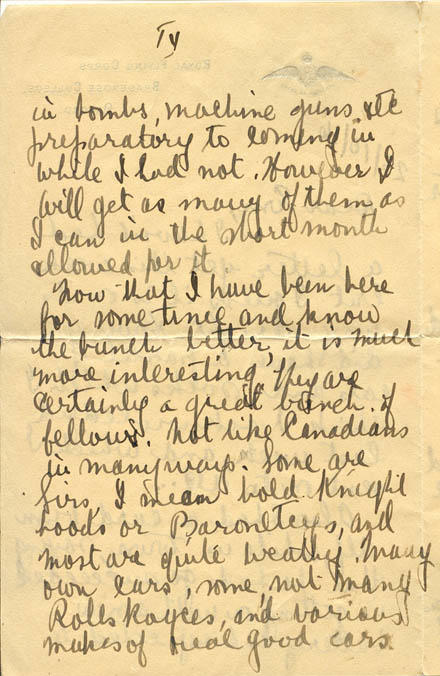 IV
in bombs, machine guns, etc
preparatory to coming in
while I had not. However I
will get as many of them as
I can in the short month
allowed for it.
Now that I have been here
for some time and know
the bunch better, it is much
more interesting, They are
certainly a great bunch of
fellows. Not like Canadians
in many ways. Some are
Sirs, I mean hold Knight
hoods or Baroneteys, and
most are quite wealthy. Many
own cars, some, not many
Rolls Royces, and various
makes of real good cars.